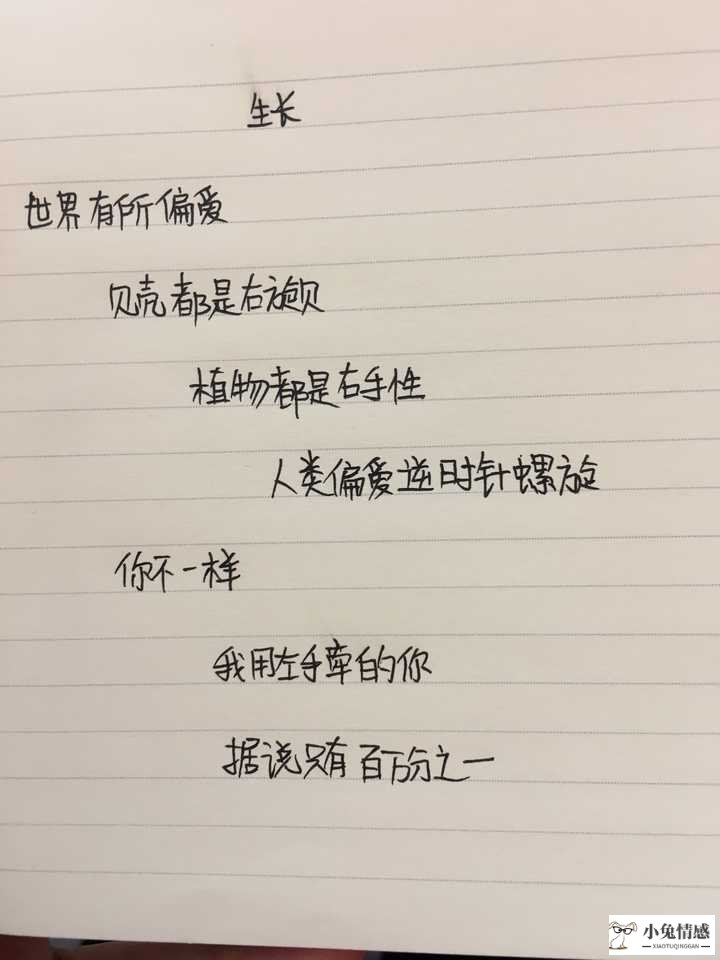 生长
世界有所偏爱
贝壳都是右旋贝
植物都是右手性
人类偏爱逆时针螺旋
你不一样
我用左手牵的你
据说只有百万分之一
小兔情感
XIAOTUQINGGAN